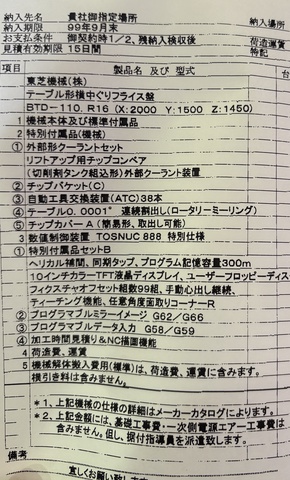 納入先名 貴社御指定場所 納入場所
納入期限 99年9月末
お支払条件 御契約時1/2、残納入検収後 荷造運賃
見積有効期限 15日間 特記
項目 製品名 及び 型式 台
東芝機械(株)
テーブル形横中ぐりフライス盤
BTD-110. R16 (X:2000 Y:1500 Z:1450)
1 機械本体及び標準付属品
2 特別付属品(機械)
① 外部形クーラントセット
リフトアップ用チップコンベア
(切削剤タンク組込形)外部クーラント装置
② チップバケット(C)
③ 自動工具交換装置(ATC)38本
④ テーブル0.0001°連続割出し(ロータリーミーリング)
⑤ チップカバーA (簡易形、取出し可能)
3 数値制御装置 TOSNUC 888 特別仕様
① 特別付属品セットB
ヘリカル補間、同期タップ、プログラム記憶容量300m
10インチカラーTFT液晶ディスプレイ、ユーザーフロッピーディス
フィクスチャオフセット組数99組、手動心出し継続、
ティーチング機能、任意角度面取りコーナーR
② プログラマブルミラーイメージ G62/G66
③ プログラマブルデータ入力 G58/G59
④ 加工時間見積り&NC描画機能
4 荷造費、運賃
5 機械解体搬入費用(標準)は、荷造費、運賃に含みます。
横引き料は含みません。
*1、上記機械の仕様の詳細はメーカーカタログによります。
*2、上記金額には、基礎工事費・一次側電源エアー工事費は
含みません。但し、据付指導員を派遣致します。
備考
宜しくお願い致し